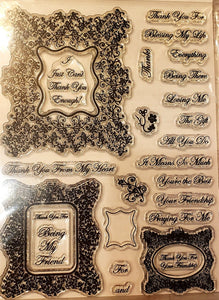 Thank You For
Blessing My Life
Everything
Thanks
Being There
I
Just Can't
Thank You
Enough!
Loving Me
The Gift
All You Do
It Means So Much
Thank You From My Heart
You're the Best
Your Friendship
Praying For Me
Thank You For
Being
My
Friend
Thank You For
Your Friendship
For
and